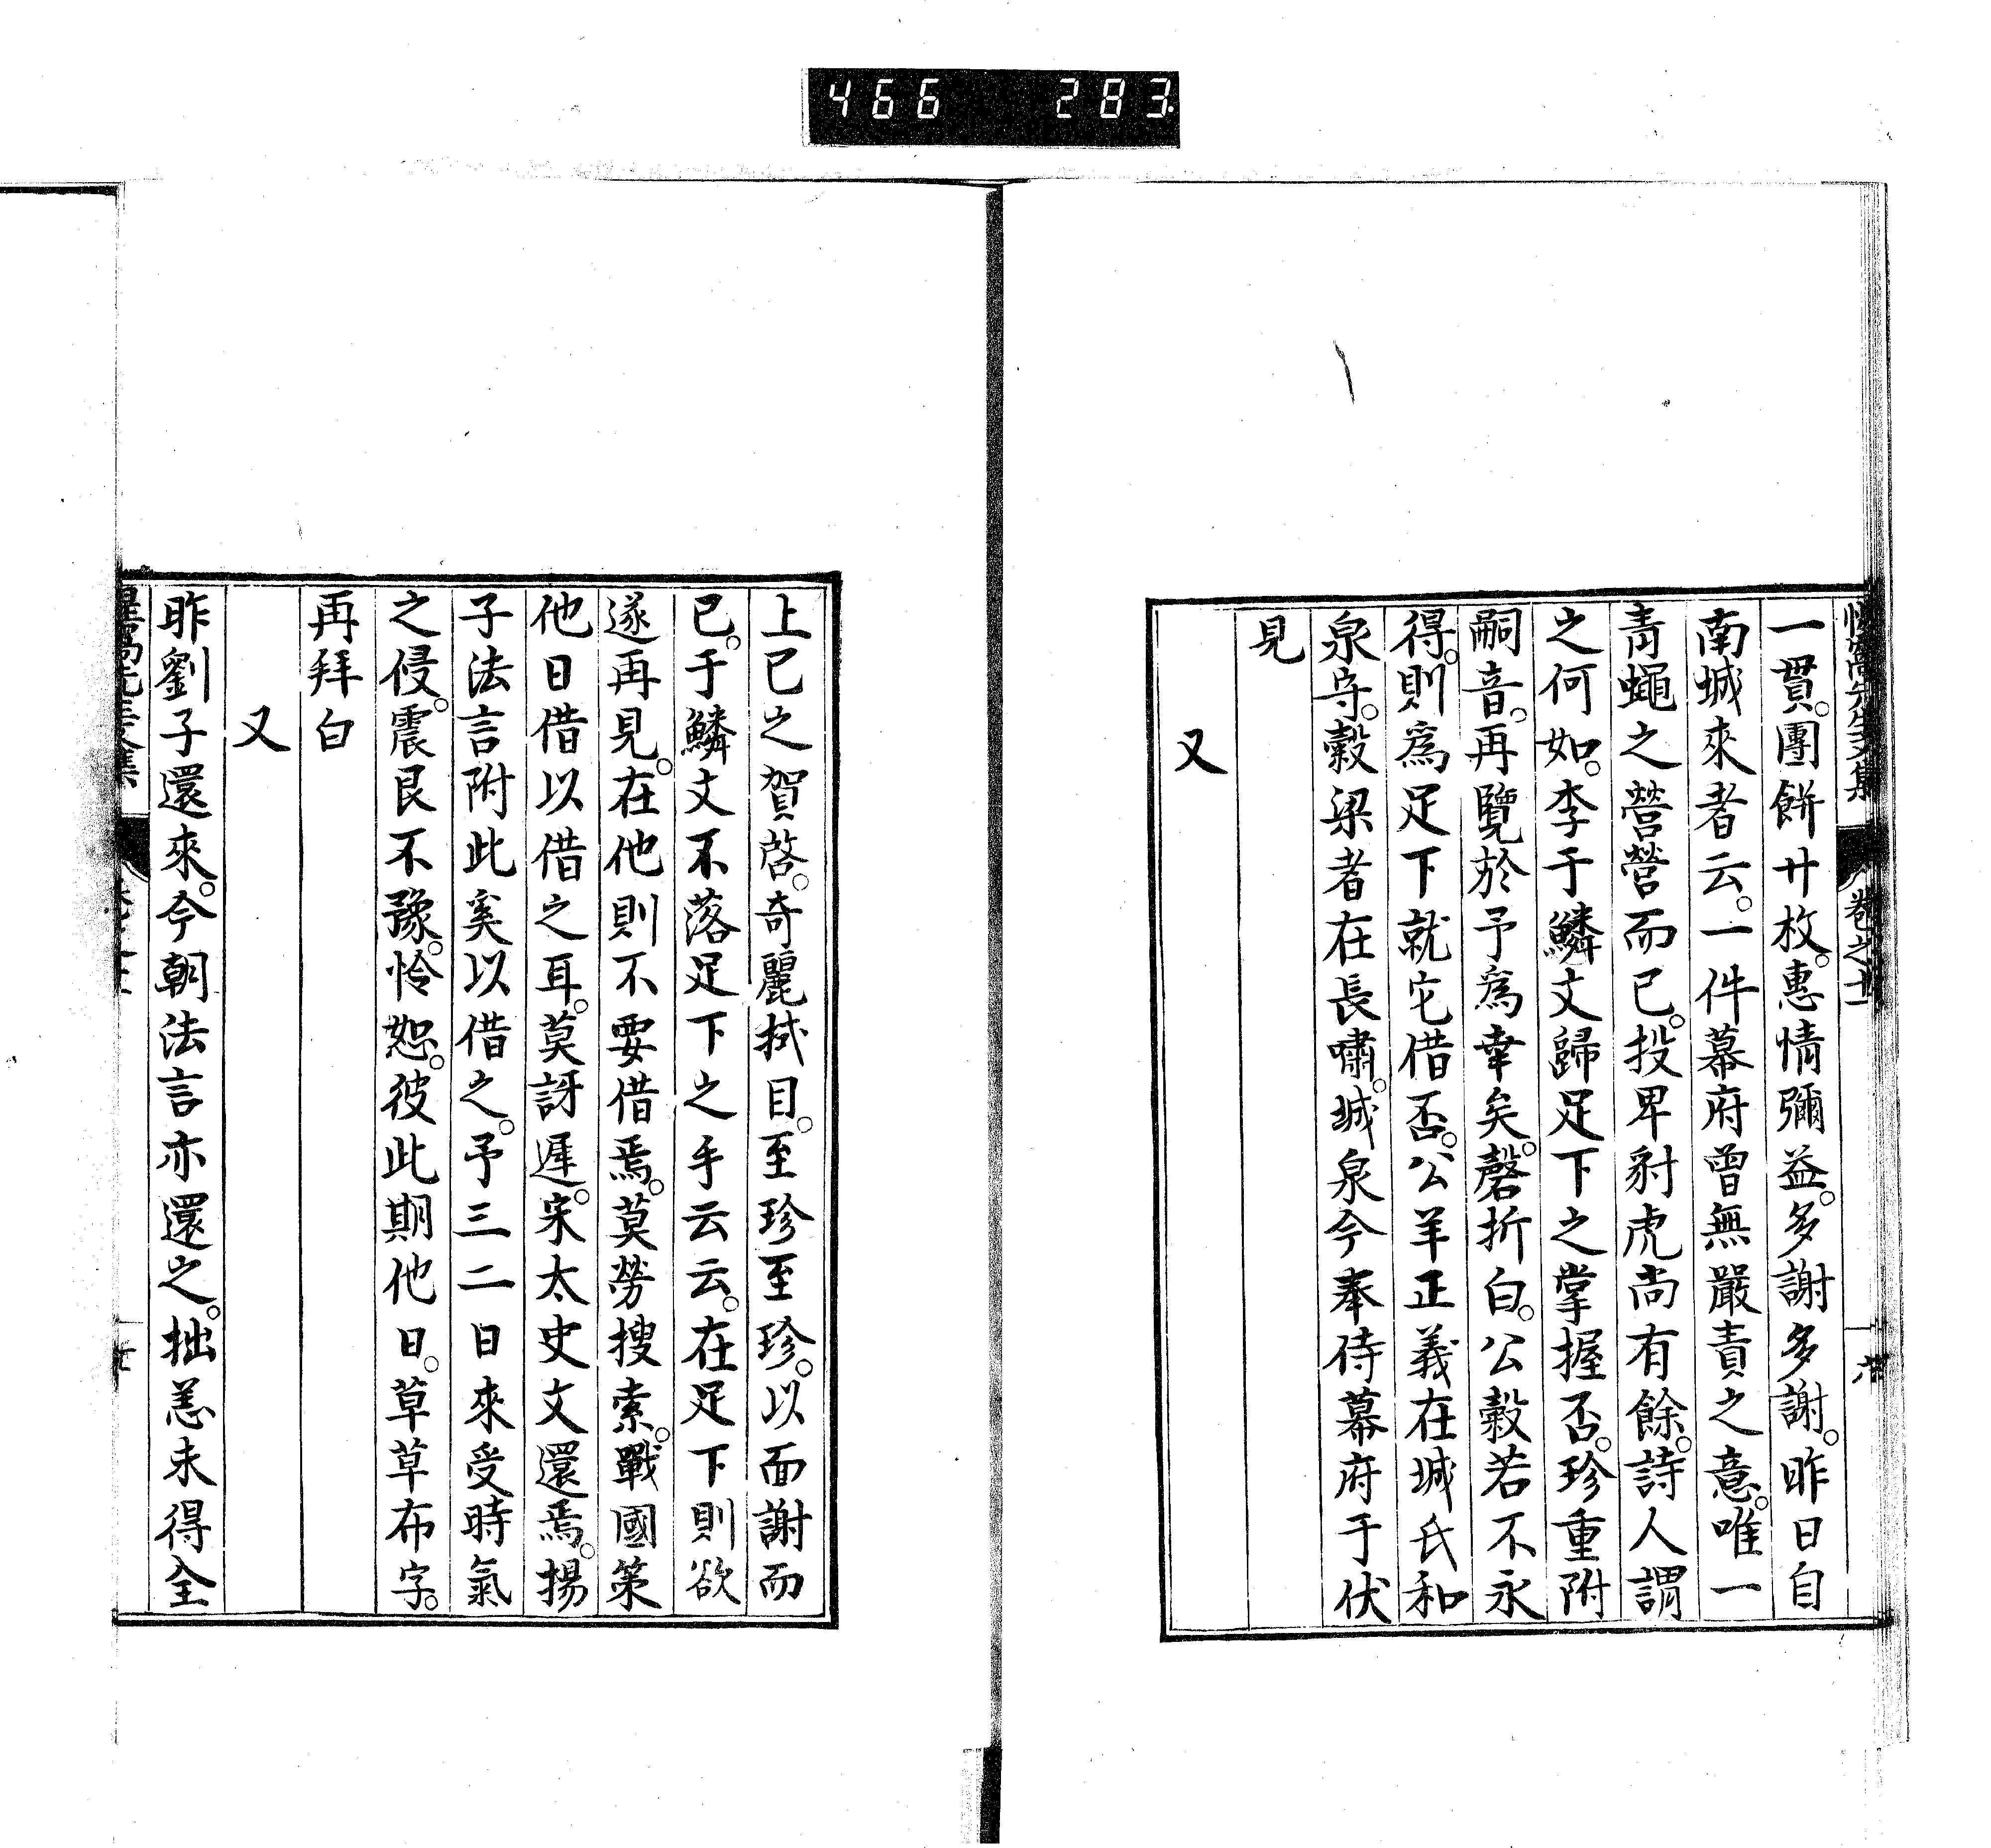 466 283
一貫。團餅廿枚。惠情彌益。多謝多謝。昨日自
南城來者云。一件幕府曾無嚴責之意。唯一
靑蠅之營營而已。投卑豺虎尚有餘。詩人謂
之何如。李于鱗文歸足下之掌握否。珍重附
嗣音。再覽於予爲幸矣。磬折白。公穀若不永
得。則爲足下就它借否。公羊正義在城氏和
泉守。穀梁者在長嘯。城泉今奉侍幕府于伏
見
又
上已之賀啓。奇麗拭目。至珍至珍。以面謝而
已。于鱗文不落足下之手云云。在足下則欲
遂再見。在他則不要借焉。莫勞搜索。戰國策
他日借以借之耳。莫訝遲。宋太史文還焉。揚
子法言附此奚以借之。予三二日來受時氣
之侵。震艮不豫。怜恕。彼此期他日。草草布字。
再拜白
又
昨劉子還來。今朝法言亦還之。拙恙未得全